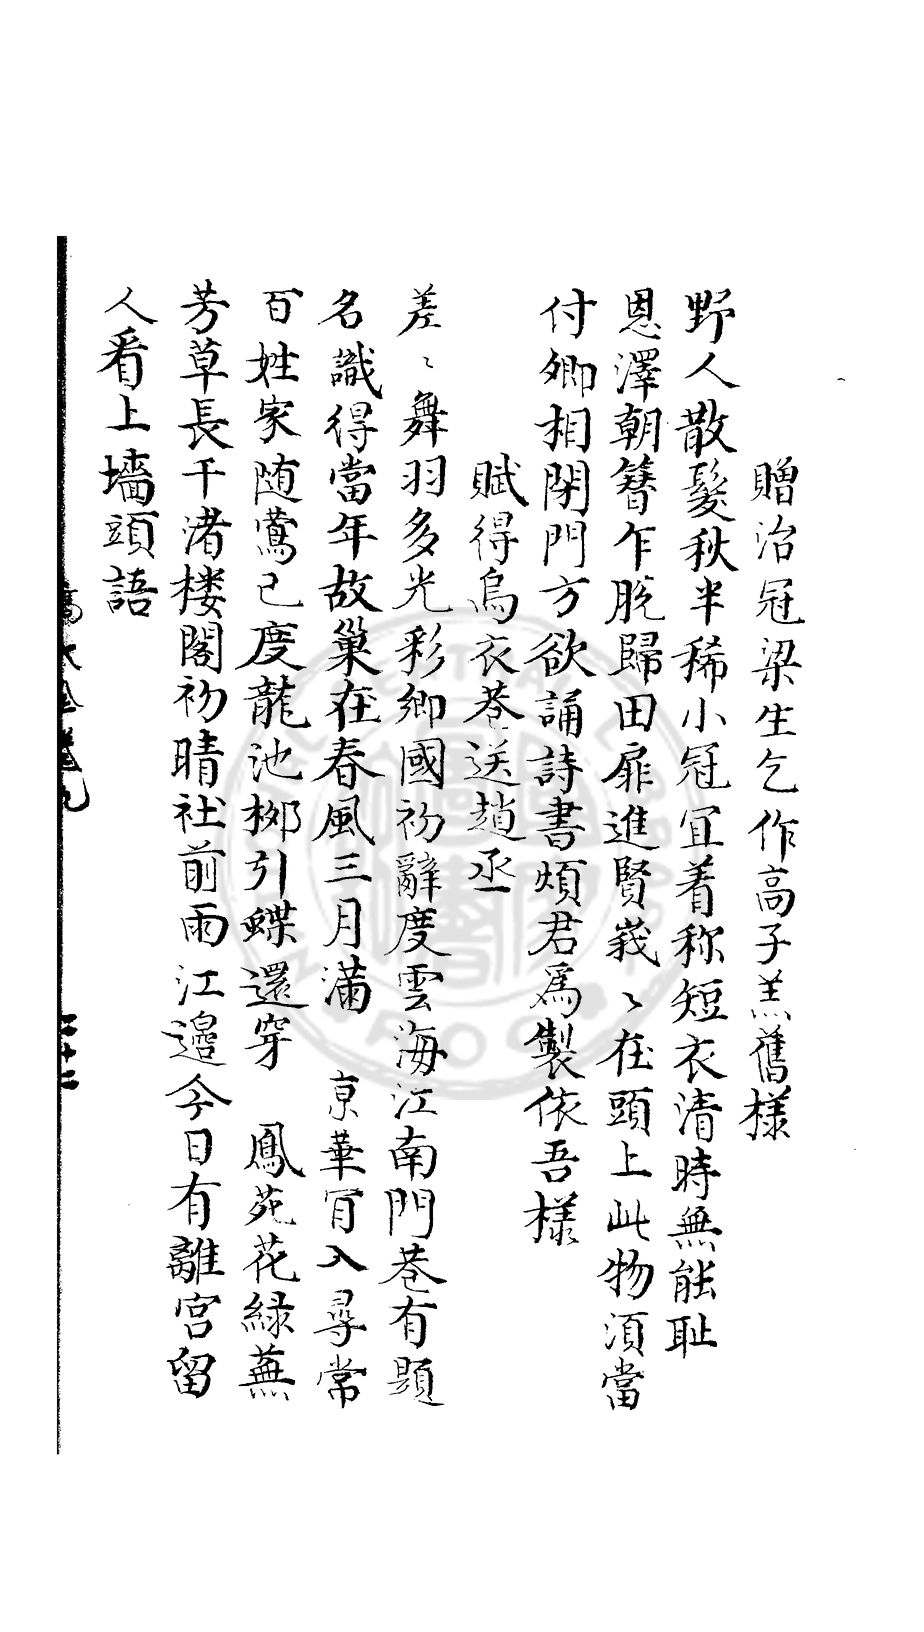 贈治冠梁生乞作高子羔舊樣
野人散髮秋半稀小冠宜着称短衣清時無能耻
恩澤朝簪乍脫歸田扉進賢峩〻在頭上此物須當
付卿相閉門方欲誦詩書煩君為製依吾樣
賦得烏衣巷送趙丞
差〻舞羽多光彩鄉國初辭度雲海江南門巷有題
名識得當年故巢在春風三月滿 京華肎入尋常
百姓家随鶯已度龍池柳引蝶還穿 鳳苑花緑蕪
芳草長干渚楼閣初晴社前雨江邊今日有離宮留
人看上墻頭語